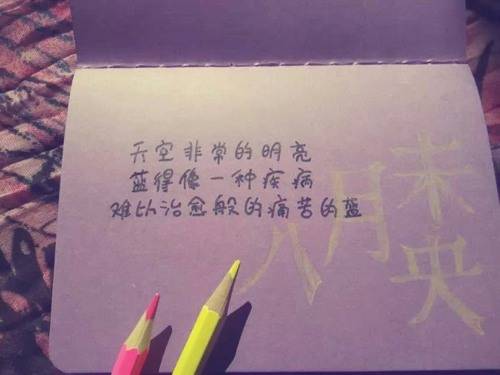 天空非常的明亮
蓝得像一种疾病
难以治愈般的痛苦的蓝
八月未央